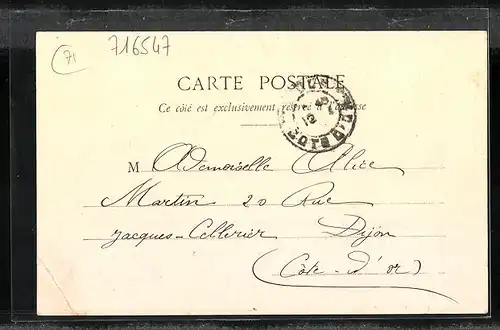 71
716547
CARTE POSTALE
Ce côté est exclusivement réservé à l'adresse
COTE D'OR
M Ademoiselle Alice
Martin 20 Rue
Jacques-Cellerier Dijon
(Côte-d'or)